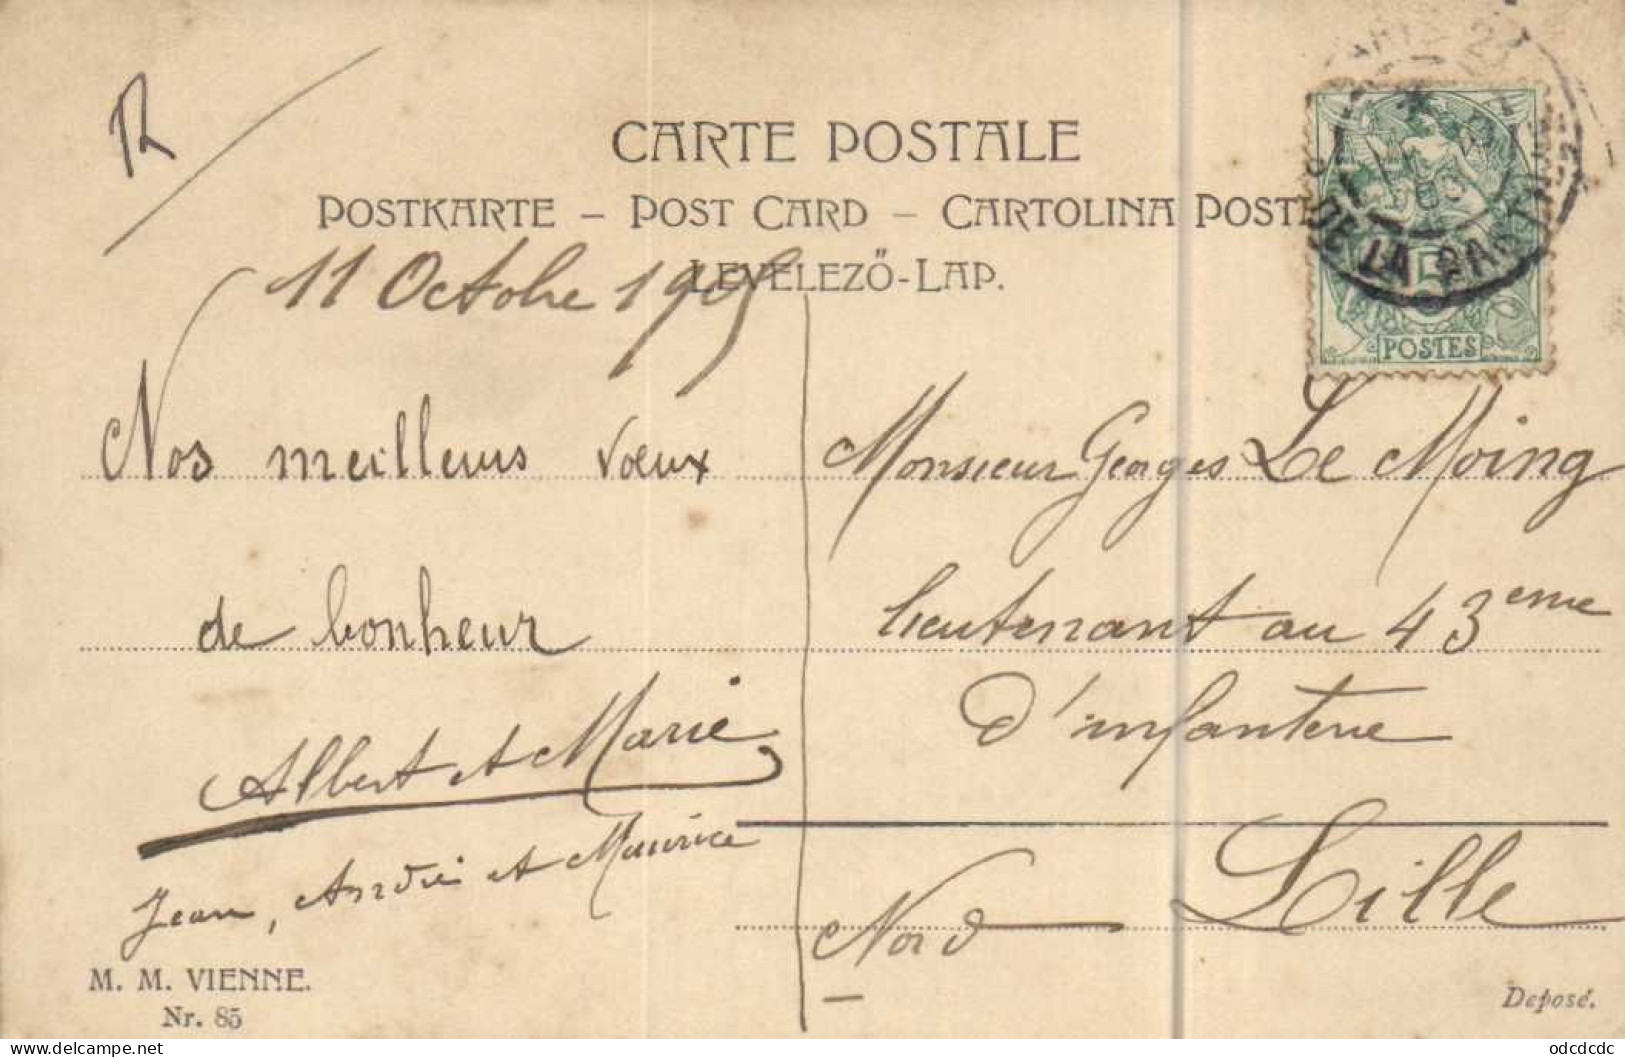 R
CARTE POSTALE
POSTKARTE – POST CARD – CARTOLINA POST
LEVELEZŐ-LAP.
11 Octobre 1905
Nos meilleurs vœux
de bonheur
Albert et Marie
Jean, André et Maurice
M. M. VIENNE.
Nr. 85
DE LA BASTILLE
5
POSTES
Monsieur Georges Le Moing
lieutenant au 43eme
d'infanterie
Lille
Nord
Deposé.
delcampe.net
odcdcdc